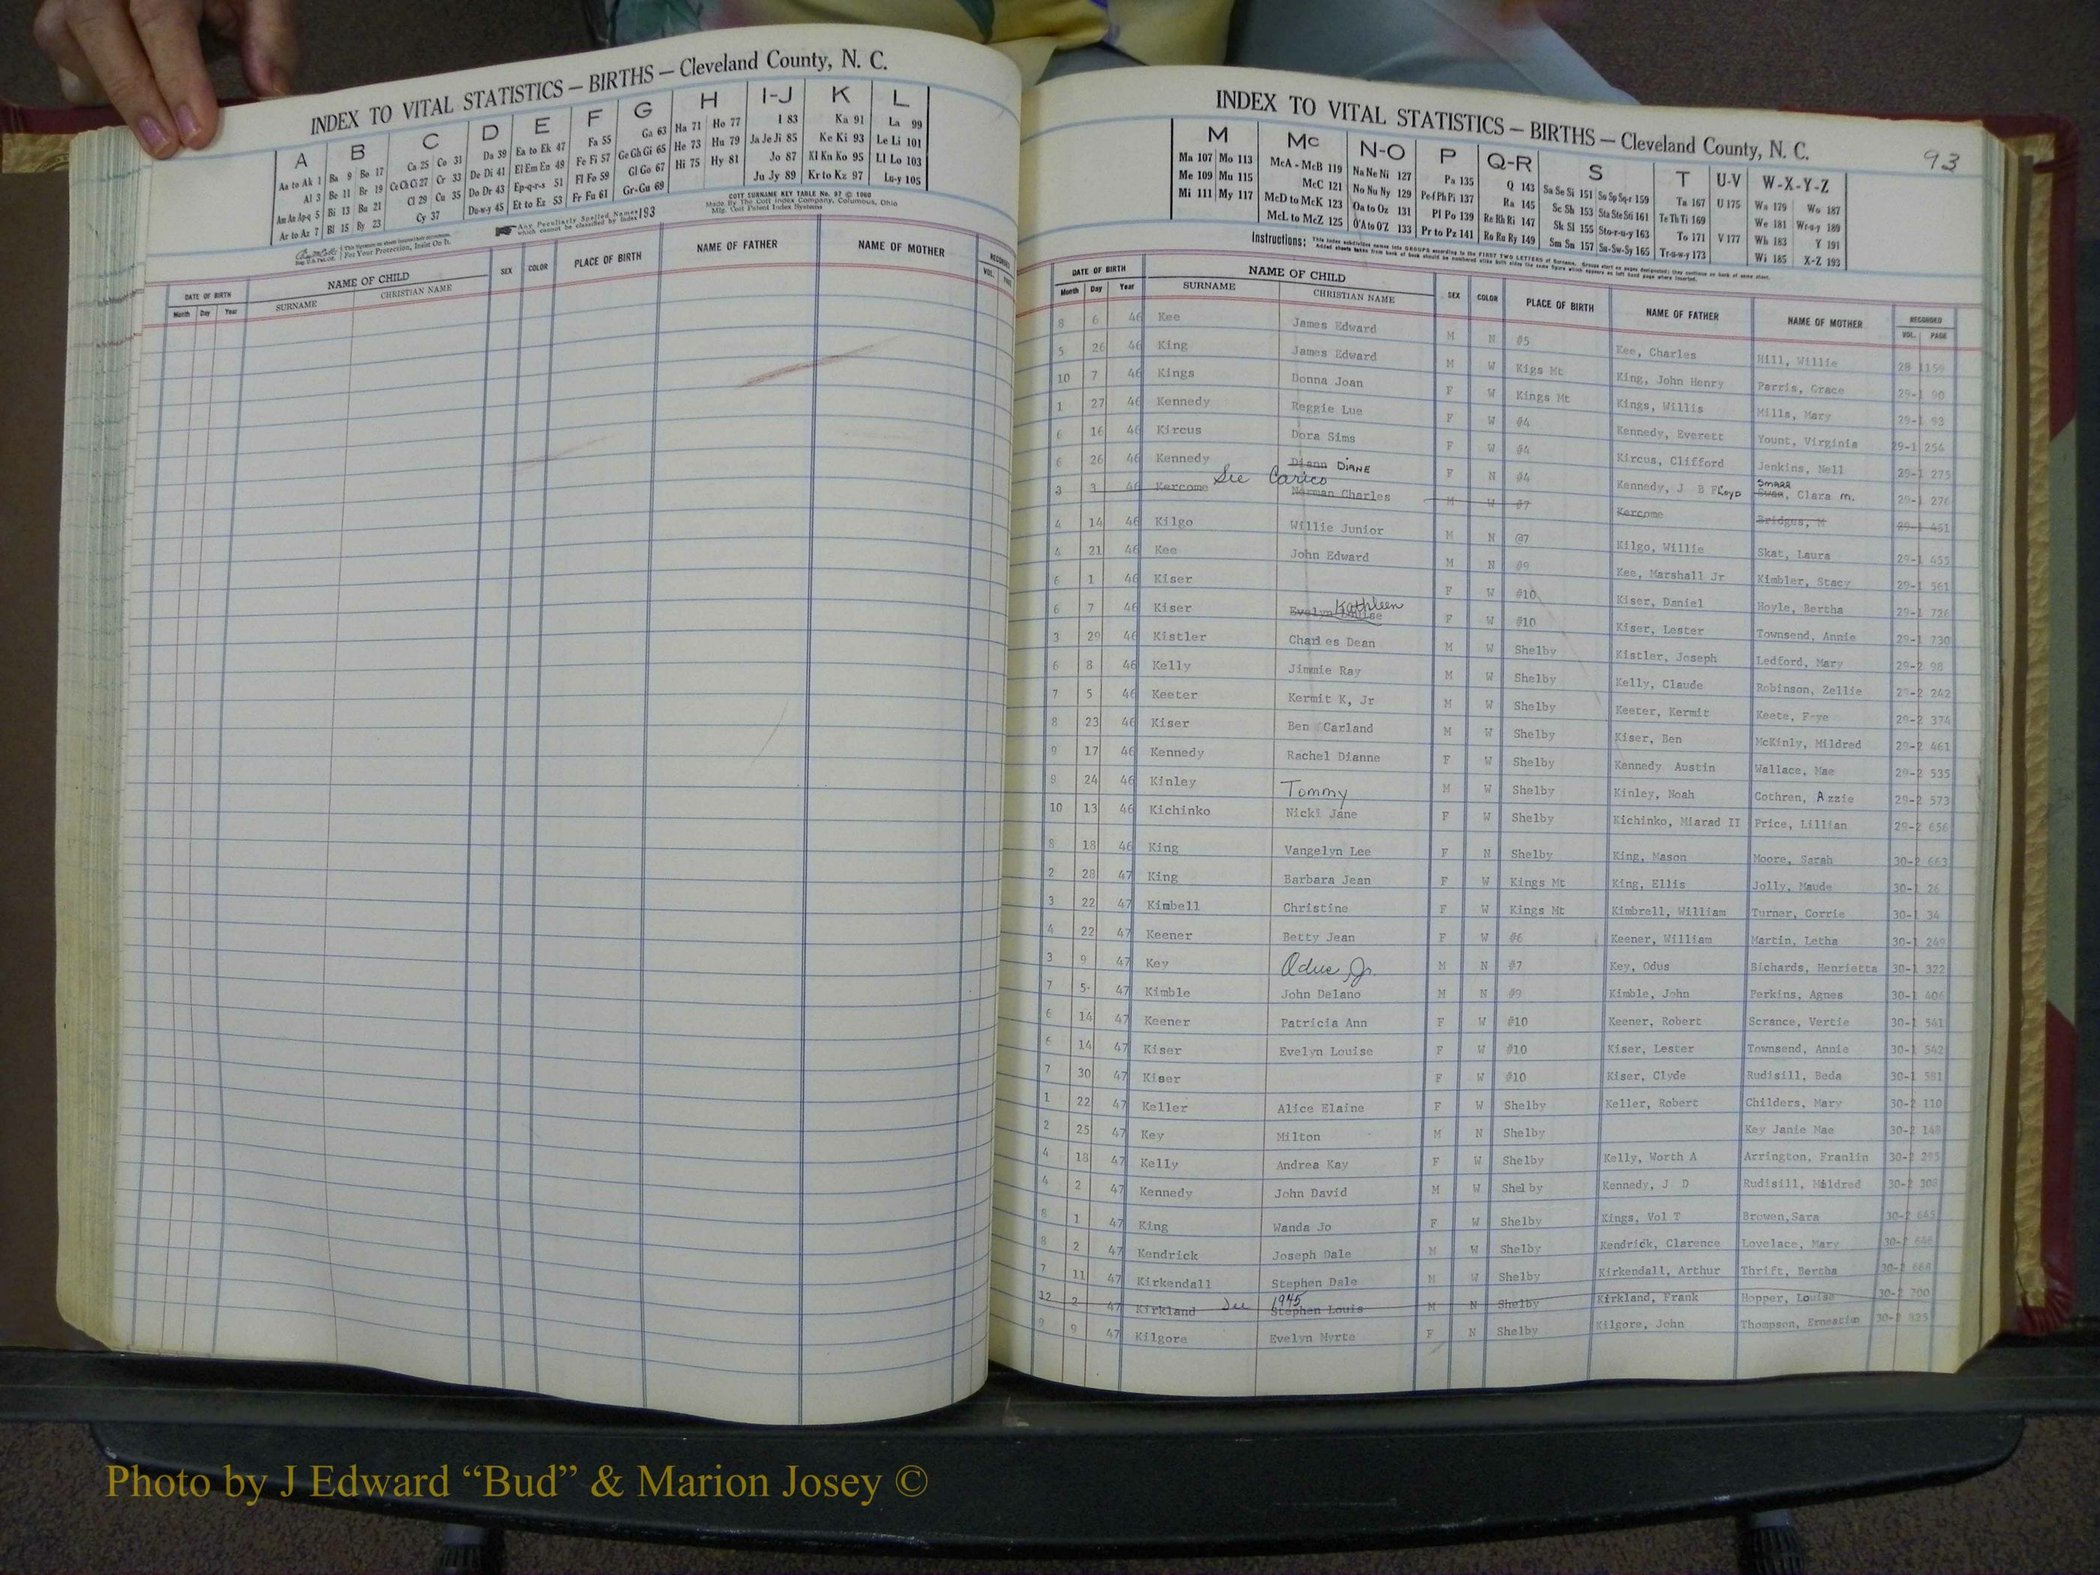 INDEX TO VITAL STATISTICS — BIRTHS — Cleveland County, N. C.
A B C D E F G H I-J K L
Aa to Ak 1 Ba 9 Bo 17 Ca 25 Co 31 Da 39 Ea to Ek 47 Fa 55 Ga 63 Ha 71 Ho 77 I 83 Ka 91 La 99
Al 3 Be 11 Br 19 Ce Ch Ci 27 Cr 33 De Di 41 El Em En 49 Fe Fi 57 Ge Gh Gi 65 He 73 Hu 79 Ja Je Ji 85 Ke Ki 93 Le Li 101
Am An Ap-q 5 Bi 13 Bu 21 Cl 29 Cu 35 Do Dr 43 Ep-q-r-s 51 Fl Fo 59 Gl Go 67 Hi 75 Hy 81 Jo 87 Kl Kn Ko 95 Ll Lo 103
Ar to Az 7 Bl 15 By 23 Cy 37 Du-w-y 45 Et to Ez 53 Fr Fu 61 Gr-Gu 69 Ju Jy 89 Kr to Kz 97 Lu-y 105
COTT SURNAME KEY TABLE No. 97 © 1960
Made By The Cott Index Company, Columbus, Ohio
Mfg. Cott Patent Index Systems
Any Peculiarly Spelled Names which cannot be classified by Index 193
For Your Protection, Insist On It.
DATE OF BIRTH NAME OF CHILD SEX COLOR PLACE OF BIRTH NAME OF FATHER NAME OF MOTHER RECORDED
Month Day Year SURNAME CHRISTIAN NAME VOL. PAGE
INDEX TO VITAL STATISTICS — BIRTHS — Cleveland County, N. C.
93
M Mc N-O P Q-R S T U-V W-X-Y-Z
Ma 107 Mo 113 McA - McB 119 Na Ne Ni 127 Pa 135 Q 143 Sa Se Si 151 So Sp Sq-r 159 Ta 167 U 175 Wa 179 Wo 187
Me 109 Mu 115 McC 121 No Nu Ny 129 Pe-f Ph Pi 137 Ra 145 Sc Sh 153 Sta Ste Sti 161 Te Th Ti 169 We 181 Wr-u-y 189
Mi 111 My 117 McD to McK 123 Oa to Oz 131 Pl Po 139 Re Rh Ri 147 Sk Sl 155 Sto-r-u-y 163 To 171 V 177 Wh 183 Y 191
McL to McZ 125 O'A to O'Z 133 Pr to Pz 141 Ro Ru Ry 149 Sm Sn 157 Su-Sw-Sy 165 Tr-u-w-y 173 Wi 185 X-Z 193
Instructions: This index subdivides names into GROUPS according to the FIRST TWO LETTERS of Surname.
DATE OF BIRTH NAME OF CHILD SEX COLOR PLACE OF BIRTH NAME OF FATHER NAME OF MOTHER RECORDED
Month Day Year SURNAME CHRISTIAN NAME VOL. PAGE
8 6 46 Kee James Edward M N #5 Kee, Charles Hill, Willie 28 1159
5 26 46 King James Edward M W Kigs Mt King, John Henry Parris, Grace 29-1 90
10 7 46 Kings Donna Joan F W Kings Mt Kings, Willis Mills, Mary 29-1 93
1 27 46 Kennedy Reggie Lue F W #4 Kennedy, Everett Yount, Virginia 29-1 254
6 16 46 Kircus Dora Sims F W #4 Kircus, Clifford Jenkins, Nell 29-1 275
6 26 46 Kennedy Diann DIANE F N #4 Kennedy, J B Floyd Smarr Swan, Clara m. 29-1 276
See Carico
3 3 46 Kercome Norman Charles M W #7 Kercome Bridges, M 29-1 451
4 14 46 Kilgo Willie Junior M N @7 Kilgo, Willie Skat, Laura 29-1 455
4 21 46 Kee John Edward M N #9 Kee, Marshall Jr Kimbler, Stacy 29-1 561
6 1 46 Kiser F W #10 Kiser, Daniel Hoyle, Bertha 29-1 726
6 7 46 Kiser Evelyn Louise Kathleen F W #10 Kiser, Lester Townsend, Annie 29-1 730
3 29 46 Kistler Charles Dean M W Shelby Kistler, Joseph Ledford, Mary 29-2 98
6 8 46 Kelly Jimmie Ray M W Shelby Kelly, Claude Robinson, Zellie 29-2 242
7 5 46 Keeter Kermit K, Jr M W Shelby Keeter, Kermit Keete, Faye 29-2 374
8 23 46 Kiser Ben Garland M W Shelby Kiser, Ben McKinly, Mildred 29-2 461
9 17 46 Kennedy Rachel Dianne F W Shelby Kennedy Austin Wallace, Mae 29-2 535
9 24 46 Kinley Tommy M W Shelby Kinley, Noah Cothren, Azzie 29-2 573
10 13 46 Kichinko Nicki Jane F W Shelby Kichinko, Miarad II Price, Lillian 29-2 656
8 18 46 King Vangelyn Lee F N Shelby King, Mason Moore, Sarah 30-2 663
2 28 47 King Barbara Jean F W Kings Mt King, Ellis Jolly, Maude 30-1 26
3 22 47 Kimbell Christine F W Kings Mt Kimbrell, William Turner, Corrie 30-1 34
4 22 47 Keener Betty Jean F W #6 Keener, William Martin, Letha 30-1 249
3 9 47 Key Odus Jr. M N #7 Key, Odus Bichards, Henrietta 30-1 322
7 5 47 Kimble John Delano M N #9 Kimble, John Perkins, Agnes 30-1 406
6 14 47 Keener Patricia Ann F W #10 Keener, Robert Scrance, Vertie 30-1 541
6 14 47 Kiser Evelyn Louise F W #10 Kiser, Lester Townsend, Annie 30-1 542
7 30 47 Kiser F W #10 Kiser, Clyde Rudisill, Beda 30-1 551
1 22 47 Keller Alice Elaine F W Shelby Keller, Robert Childers, Mary 30-2 110
2 25 47 Key Milton M N Shelby Key Janie Mae 30-2 148
4 18 47 Kelly Andrea Kay F W Shelby Kelly, Worth A Arrington, Franlin 30-2 295
4 2 47 Kennedy John David M W Shelby Kennedy, J D Rudisill, Mildred 30-2 308
8 1 47 King Wanda Jo F W Shelby Kings, Vol T Browen,Sara 30-2 645
8 2 47 Kendrick Joseph Dale M W Shelby Kendrick, Clarence Lovelace, Mary 30-2 646
7 11 47 Kirkendall Stephen Dale M W Shelby Kirkendall, Arthur Thrift, Bertha 30-2 668
12 2 47 Kirkland See 1945 Stephen Louis M N Shelby Kirkland, Frank Hopper, Louise 30-2 700
9 9 47 Kilgore Evelyn Myrte F N Shelby Kilgore, John Thompson, Ernestin 30-2 825
Photo by J Edward “Bud” & Marion Josey ©